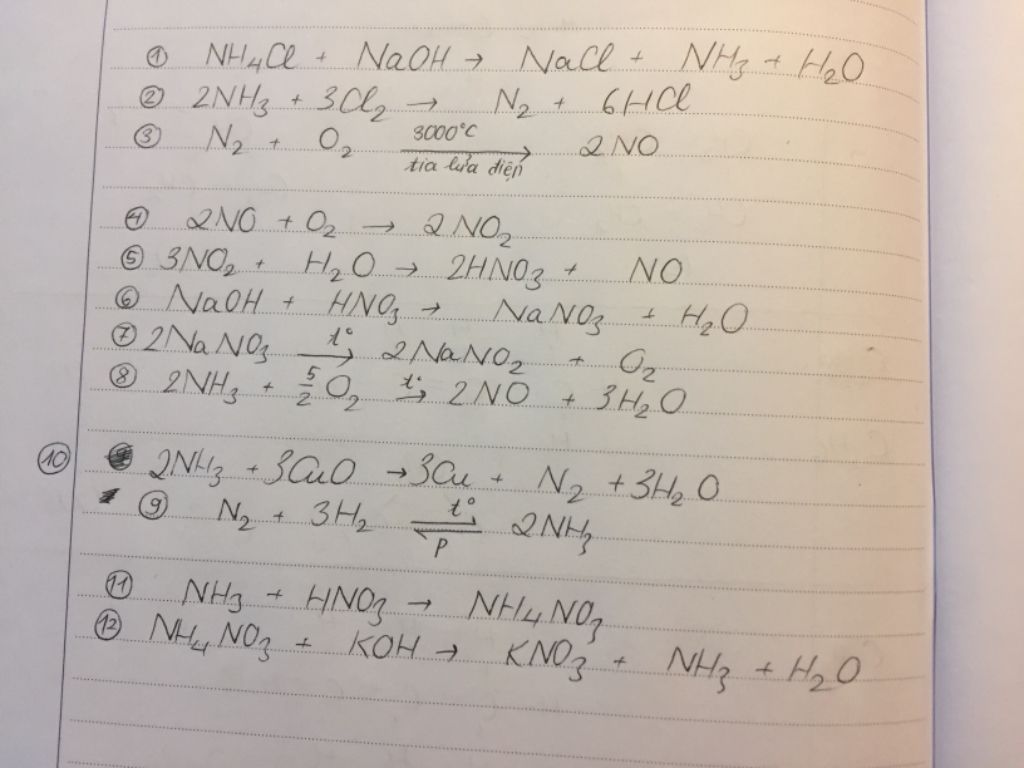 ① NH₄Cl + NaOH → NaCl + NH₃ + H₂O
② 2NH₃ + 3Cl₂ → N₂ + 6HCl
③ N₂ + O₂ 3000°C → tia lửa điện 2NO
④ 2NO + O₂ → 2NO₂
⑤ 3NO₂ + H₂O → 2HNO₃ + NO
⑥ NaOH + HNO₃ → NaNO₃ + H₂O
⑦ 2NaNO₃ t° → 2NaNO₂ + O₂
⑧ 2NH₃ + 5/2 O₂ t° → 2NO + 3H₂O
⑩ 2NH₃ + 3CuO → 3Cu + N₂ + 3H₂O
⑨ N₂ + 3H₂ t° ⇌ p 2NH₃
⑪ NH₃ + HNO₃ → NH₄NO₃
⑫ NH₄NO₃ + KOH → KNO₃ + NH₃ + H₂O